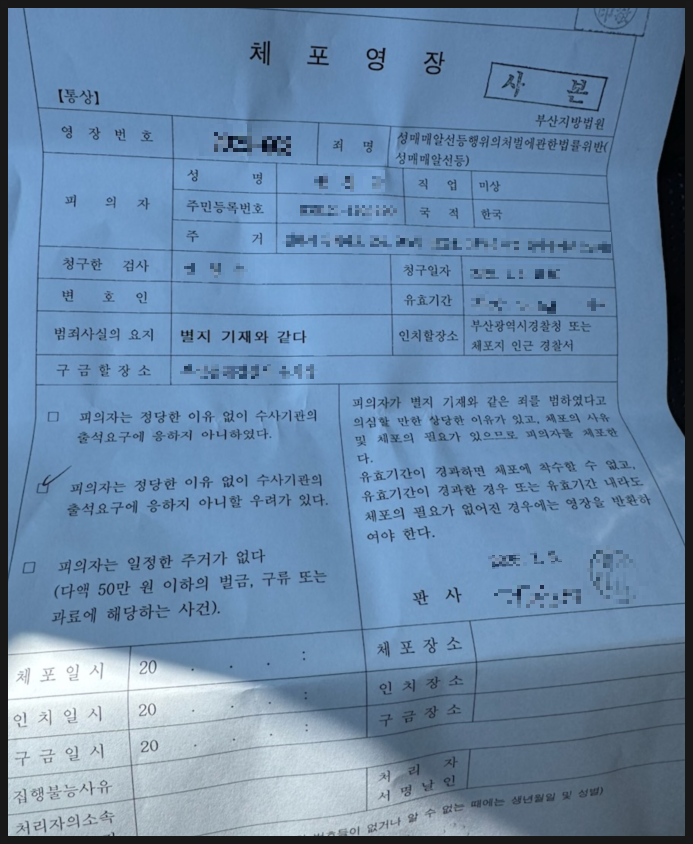 체 포 영 장
사 본
【통상】
부산지방법원
영 장 번 호
죄 명
성매매알선등행위의처벌에관한법률위반(
성매매알선등)
피 의 자
성 명
직 업
미상
주민등록번호
국 적
한국
주 거
청구한 검사
청구일자
변 호 인
유효기간
범죄사실의 요지
별지 기재와 같다
인치할장소
부산광역시경찰청 또는
체포지 인근 경찰서
구 금 할 장 소
□ 피의자는 정당한 이유 없이 수사기관의
출석요구에 응하지 아니하였다.
☑ 피의자는 정당한 이유 없이 수사기관의
출석요구에 응하지 아니할 우려가 있다.
□ 피의자는 일정한 주거가 없다
(다액 50만 원 이하의 벌금, 구류 또는
과료에 해당하는 사건).
피의자가 별지 기재와 같은 죄를 범하였다고
의심할 만한 상당한 이유가 있고, 체포의 사유
및 체포의 필요가 있으므로 피의자를 체포한
다.
유효기간이 경과하면 체포에 착수할 수 없고,
유효기간이 경과한 경우 또는 유효기간 내라도
체포의 필요가 없어진 경우에는 영장을 반환하
여야 한다.
판 사
체 포 일 시
20 . . . :
체 포 장 소
인 치 일 시
20 . . . :
인 치 장 소
구 금 일 시
20 . . . :
구 금 장 소
집행불능사유
처 리 자
서 명 날 인
처리자의소속
없거나 알 수 없는 때에는 생년월일 및 성별)